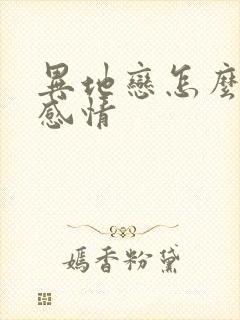 異地戀怎麼
感情
嫣香粉黛